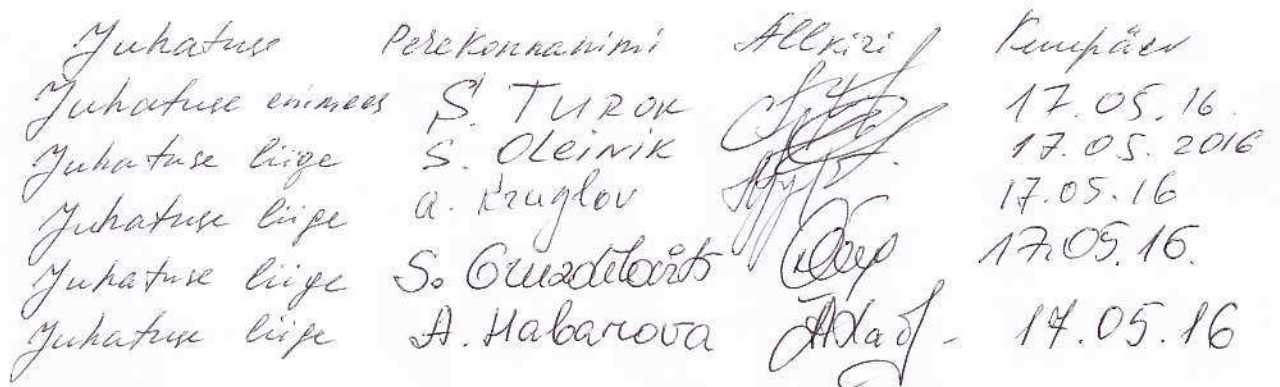 Juhatuse Perekonnanimi Allkiri Kuupäev
Juhatuse esimees S. TUROK 17.05.16.
Juhatuse liige S. Oleinik 17.05.2016
Juhatuse liige A. Kruglov 17.05.16
Juhatuse liige S. 17.05.16.
Juhatuse liige A. Habarova 17.05.16